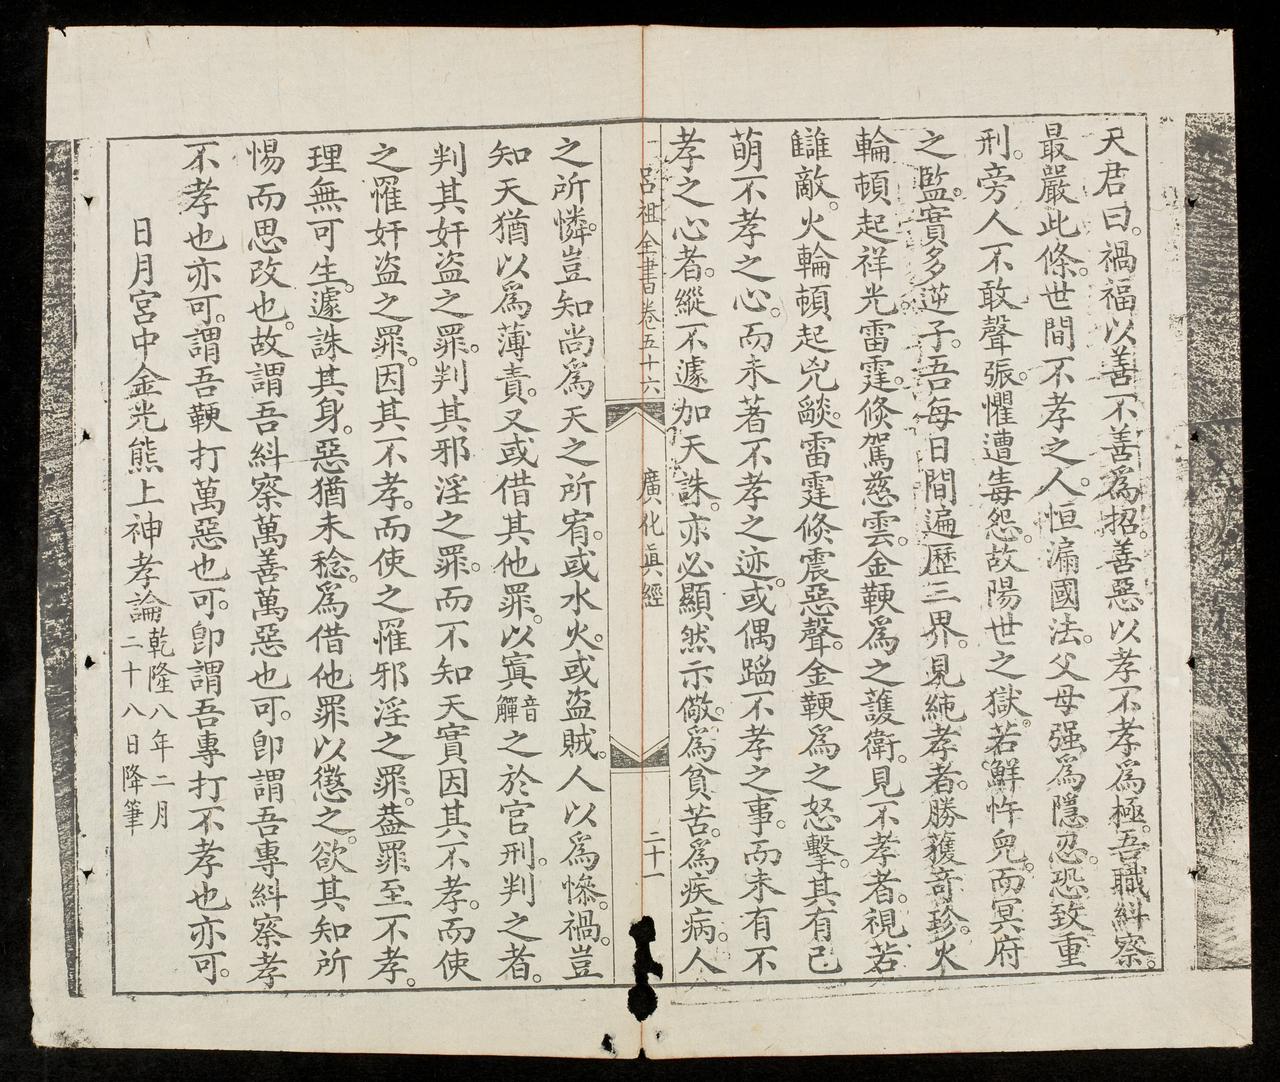 天君曰。禍福以善不善爲招。善惡以孝不孝爲極。吾職糾察。
最嚴此條。世間不孝之人。恒漏國法。父母强爲隱忍。恐致重
刑。旁人不敢聲張。懼遭毒怨。故陽世之獄。若鮮忤兒。而冥府
之監。實多逆子。吾每日間遍歷三界。見純孝者。勝獲奇珍。火
輪頓起祥光。雷霆倏駕慈雲。金鞕爲之護衛。見不孝者。視若
讎敵。火輪頓起兇燄。雷霆倏震惡聲。金鞕爲之怒擊。其有已
萌不孝之心。而未著不孝之迹。或偶蹈不孝之事。而未有不
孝之心者。縱不遽加天誅。亦必顯然示儆。爲貧苦。爲疾病。人
呂祖全書卷五十六 廣化眞經 二十一
之所憐。豈知尚爲天之所宥。或水火。或盜賊。人以爲慘禍。豈
知天猶以爲薄責。又或借其他罪。以寘音觶之於官刑。判之者。
判其奸盜之罪。判其邪淫之罪。而不知天實因其不孝。而使
之罹奸盜之罪。因其不孝。而使之罹邪淫之罪。葢罪至不孝。
理無可生。遽誅其身。惡猶未稔。爲借他罪以懲之。欲其知所
惕而思改也。故謂吾糾察萬善萬惡也可。卽謂吾專糾察孝
不孝也亦可。謂吾鞕打萬惡也可。卽謂吾專打不孝也亦可。
日月宮中金光熊上神孝論乾隆八年二月二十八日降筆